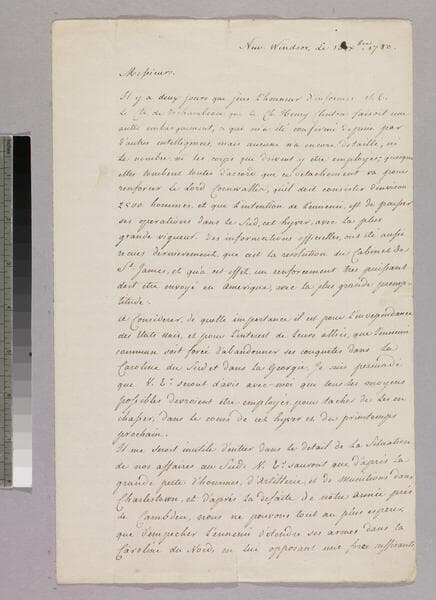 New Windsor, le 1 Xbre 1780.
Messieurs.
Il y a deux jours que j'eus l'honneur d'informer S. E.
le Cte de Rochambeau que le Ch. Henry Clinton faisoit une
autre embarquement, ce qui m'a été confirmé depuis par
d'autres intelligences, mais aucune n'a encore detaillé, ni
le nombre, ni les corps qui doivent y etre employés; quoique
elles tombent toutes d'accord que ce detachement va pour
renforcer le Lord Cornwallis, qu'il doit consister d'environ
2500 hommes, et que l'intention de l'ennemi, est de pousser
ses operations dans le Sud, cet hyver, avec la plus
grande vigueur. Des informations officielles, ont été aussi
recues dernierement, que c'est la resolution du Cabinet de
St. James, et qu'a cet effet, un renforcement tres puissant
doit etre envoyé en Amerique, avec la plus grande promp-
titude.
A Considerer de quelle importance il est pour l'independance
des Etats unis, et pour l'interet de leurs alliés, que l'ennemi
commun soit forcé d'abandonner ses conquetes dans la
Caroline du Sud et dans la Georgie. Je suis persuadé
que V. Es. seront d'avis avec moi que tous les moyens
possibles devroient etre employés, pour tacher de les en
chasser, dans le cours de cet hyver et du printemps
prochain.
Il me seroit inutile d'entrer dans le detail de la Situation
de nos affaires au Sud. V. Es. sauront que d'après la
grande perte d'hommes, d'Artillerie, et de munitions dans
Charlestown, et d'après la defaite de notre armée près
de Cambden, nous ne pouvons tout au plus esperer
que d'empecher l'ennemi d'etendre ses armes dans la
Caroline du Nord, en lui opposant une force suffisante